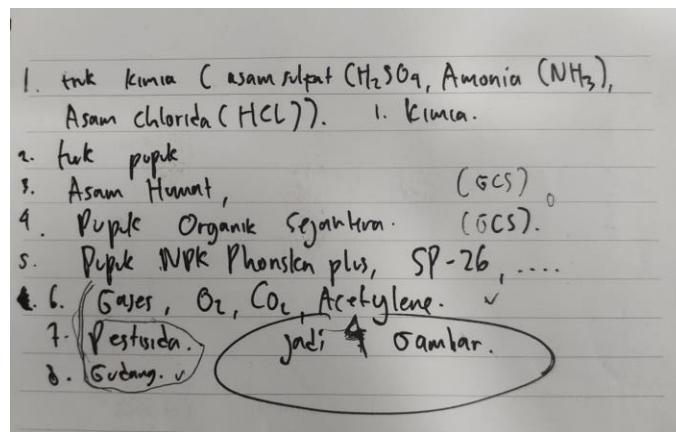 1. trk kimia ( asam sulfat (H₂SO4, Amonia (NH₃),
Asam chlorida (HCL)). 1. Kimia.
2. truk pupuk
3. Asam Humat, (GCS)
4. Pupuk Organik Sejahtera. (GCS).
5. Pupuk NPK Phonska plus, SP-26, ....
6. Gases, O₂, CO₂, Acetylene. ✓
7. Pestisida. jadi 4 Gambar.
8. Gudang. ✓